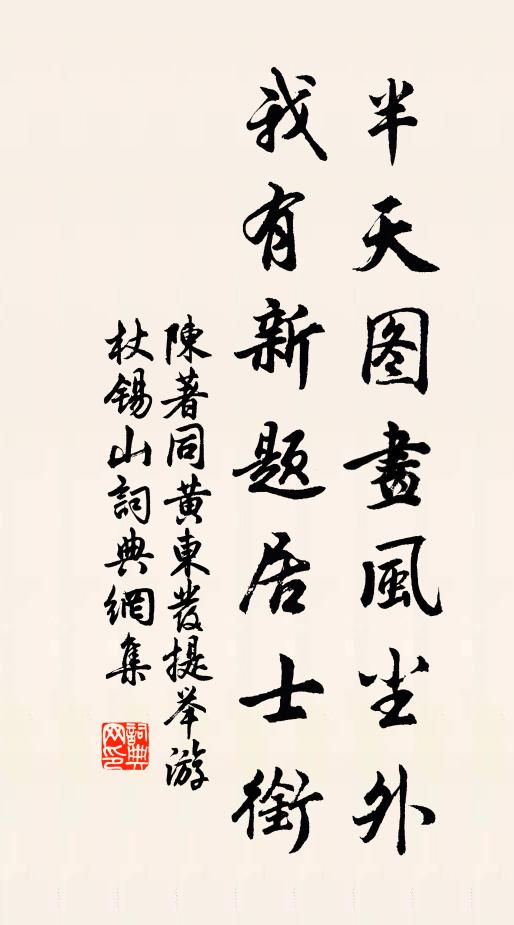 半天图畫風尘外
我有新题居士銜
陳著同黄東發提举游
杖锡山詞典網集
詞典网印